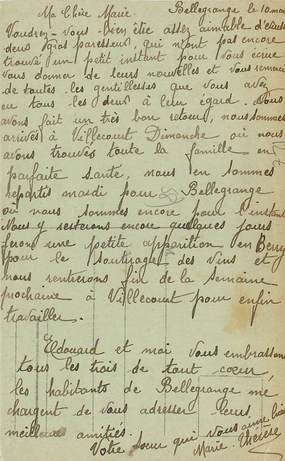 Bellegrange le 10 mars
Ma Chère Marie.
Voudrez-vous bien être assez aimable d'excuser
deux gros paresseux, qui n'ont pas encore
trouvé un petit instant pour vous écrire
vous donner de leurs nouvelles et vous remercier
de toutes les gentillesses que vous avez
eu tous les deux à leur égard. Nous
avons fait un très bon retour, nous sommes
arrivés à Villecourt Dimanche où nous
avons trouvés toute la famille en
parfaite santé, nous en sommes
repartis mardi pour Bellegrange
où nous sommes encore pour l'instant
Nous y resterons encore quelques jours
ferons une petite apparition en Berry
pour le soutirage des vins et
nous rentrerons fin de la semaine
prochaine à Villecourt pour enfin
travailler.
Edouard et moi vous embrassons
tous les trois de tout cœur,
les habitants de Bellegrange me
chargent de vous adresser leurs
meilleures amitiés.
Votre sœur qui vous aime bien
Marie Thérèse